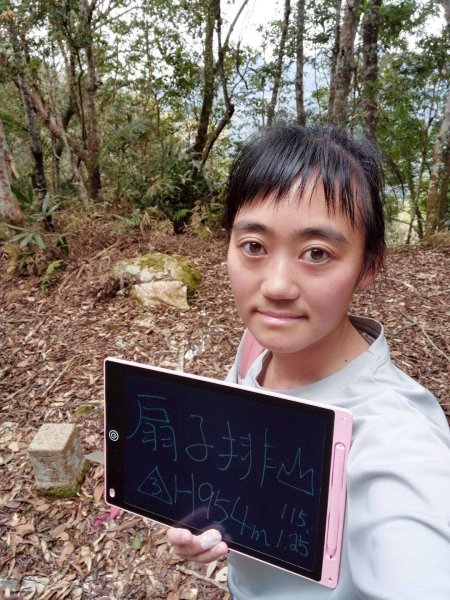 扇子排山
△3 H954m
115.
1.25